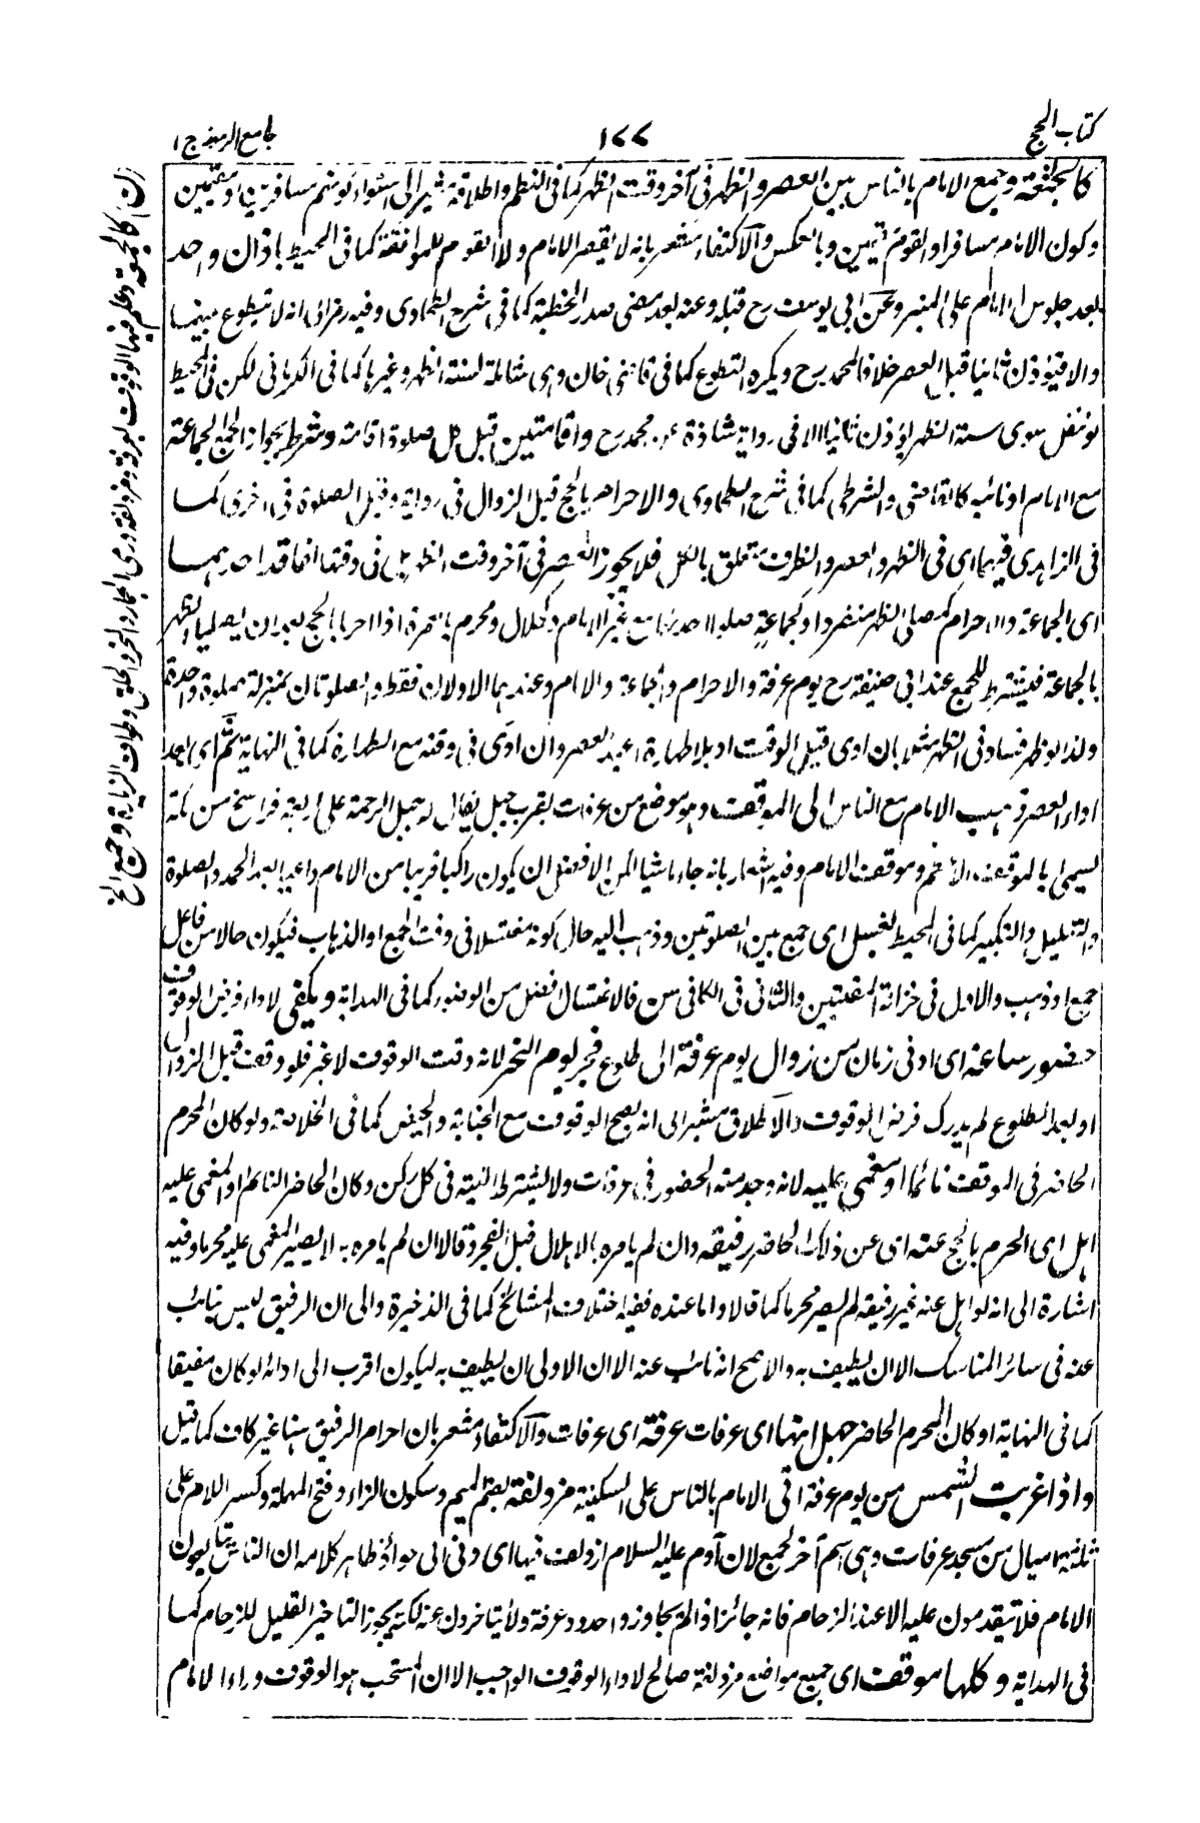 كتاب الحج
١٧٧
جامع الرموز ج ١
كالجمعة وجمع الامام بالناس بين العصر والظهر فى آخر وقت الظهر كما فى النظم واطلاقه مشير الى استواء كونهم مسافرين او مقيمين
وكون الامام مسافرا والقوم مقيمين وبالعكس والاكتفاء مشعر بانه لا يقصر الامام ولا القوم للموافقة كما فى المحيط باذان واحد
بعد جلوس الامام على المنبر وعن ابى يوسف رح قبله وعنه بعد مضى صدر الخطبة كما فى شرح الطحاوى وفيه رمز الى انه لا يتطوع بينهما
والا فيؤذن ثانيا قبل العصر خلافا لمحمد رح ويكره التطوع كما فى قاضى خان وهى شاملة لسنة الظهر وغيرها كما فى الكرمانى لكن فى المحيط
لو تنفل سوى سنة الظهر يؤذن ثانيا الا فى رواية شاذة عن محمد رح واقامتين قبل كل صلوة اقامة وشرط بجواز الجمع الجماعة
مع الامام او نائبه كالقاضى والشرطى كما فى شرح الطحاوى والاحرام بالحج قبل الزوال فى رواية وقبل الصلوة فى اخرى كما
فى الزاهدى فيهما اى فى الظهر والعصر والظرف متعلق بالكل فلا يجوز العصر فى آخر وقت الظهر بل فى وقتها اذا فقد احدهما
اى الجماعة والاحرام كمن صلى الظهر منفردا او بجماعة صلوا احدهما مع غير الامام وكحلال ومحرم بالعمرة اذا احرما بالحج بعد ان يصليا الظهر
بالجماعة فيشترط للجمع عند ابى حنيفة رح يوم عرفة والاحرام والجماعة والامام وعندهما الاولان فقط والصلوتان بمنزلة صلوة واحدة
ولذا لو ظهر فساد فى الظهر مثل بان ادى قبل الوقت او بلا طهارة اعيد العصر وان ادى فى وقته مع الطهارة كما فى النهاية ثم اى بعد
اداء العصر ذهب الامام مع الناس الى الموقف وهو موضع من عرفات بقرب جبل يقال له جبل الرحمة على اربعة فراسخ من مكة
يسمى بالموقف الاعظم وموقف الامام وفيه اشعار بانه جاء ماشيا لكن الافضل ان يكون راكبا قريبا من الامام داعيا بعد الحمد والصلوة
والتهليل والتكبير كما فى المحيط بغسل اى جمع بين الصلوتين وذهب اليه حال كونه مغتسلا فى وقت الجمع او الذهاب فيكون حالا من فاعل
جمع او ذهب والاول فى خزانة المفتيين والثانى فى الكافى سن فالاغتسال افضل من الوضوء كما فى الهداية ويكفى لاداء فرض الوقوف
حضور ساعة اى ادنى زمان من زوال يوم عرفة الى طلوع فجر يوم النحر لانه وقت الوقوف لا غير فلو وقف قبل الزوال
او بعد الطلوع لم يدرك فرض الوقوف والاطلاق مشير الى انه يصح الوقوف مع الجنابة والحيض كما فى الخلاصة ولو كان المحرم
الحاضر فى الموقف نائما او مغمى عليه لانه وجد منه الحضور فى عرفات ولا يشترط النية فى كل ركن وكان الحاضر النائم او المغمى عليه
اهل اى احرم بالحج عنه اى عن ذلك الحاضر رفيقه وان لم يامره بالاهلال قبل الفجر وقالا ان لم يامره به لا يصير المغمى عليه محرما وفيه
اشارة الى انه لو اهل عنه غير رفيقه لم يصر محرما كما قالا واما عنده ففيه اختلاف المشائخ كما فى الذخيرة والى ان الرفيق ليس نيائب
عنه فى سائر المناسك الا ان يطيف به والاصح انه نائب عنه الا ان الاولى ان يطيف به ليكون اقرب الى ادائه لو كان مفيقا
كما فى النهاية او كان المحرم الحاضر جهل انها اى عرفات عرفة اى عرفات والاكتفاء مشعر بان احرام الرفيق هنا غير كاف كما قيل
واذا غربت الشمس من يوم عرفة اتى الامام بالناس على السكينة مزدلفة بضم الميم وسكون الزاء وفتح المهملة وكسر اللام على
ثلثة اميال من مسجد عرفات وهى اسم آخر لجمع لان آدم عليه السلام ازدلف فيها اى دنى الى حواء وظاهر كلامه ان الناس يتابعون
الامام فلا يتقدمون عليه الا عند الزحام فانه جائز اذا لم يجاوزوا حدود عرفة ولا يتاخرون عنه لكنه يجوز التاخير القليل للزحام كما
فى الهداية وكلها موقف اى جميع مواضع مزدلفة صالح لاداء الوقوف الواجب الا ان المستحب هو الوقوف وراء الامام
كالجمعة وعلم فيها الوقوف بعرفة ومزدلفة ورمى الجمار والنحر والحلق وطواف الزيارة وجمع الخ